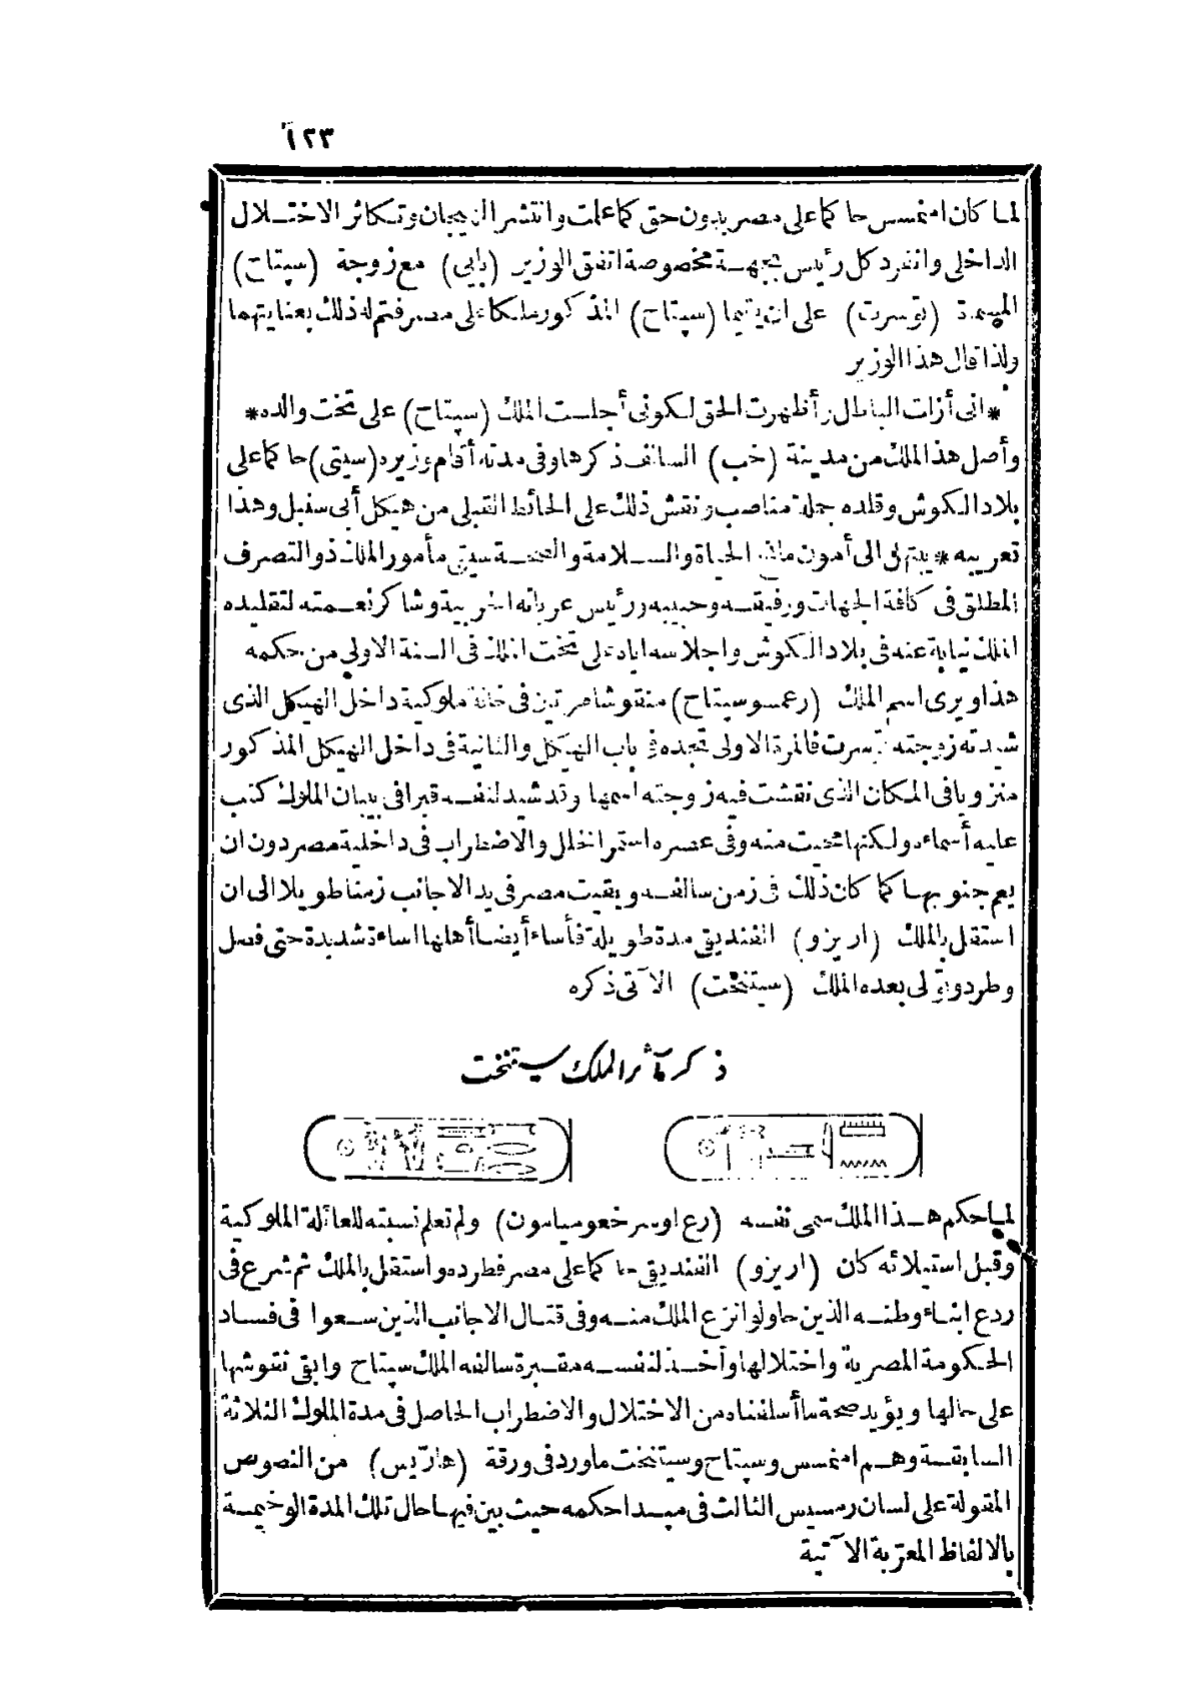 ١٢٣
لما كان امنمسس حاكما على مصر بدون حق كما علمت وانتشر الهيجان وتكاثر الاختلال
الداخلى وانفرد كل رئيس بجهة مخصوصة اتفق الوزير (بايي) مع زوجة (سيتاح)
المسماة (توسرت) على ان يقيما (سيتاح) المذكور ملكا على مصر فتم له ذلك بعنايتهما
ولذا قال هذا الوزير
*انى أزلت الباطل وأظهرت الحق لكونى أجلست الملك (سيتاح) على تخت والده*
وأصل هذا الملك من مدينة (خب) السالف ذكرها وفى مدته أقام وزيره (سيتى) حاكما على
بلاد الكوش وقلده جملة مناصب ونقش ذلك على الحائط القبلى من هيكل أبى سنبل وهذا
تعريبه *يبتهل الى أمون مانح الحياة والسلامة والصحة سيتى مأمور الملك ذو التصرف
المطلق فى كافة الجهات ورفيقه وحبيبه ورئيس عرباته الحربية وشاكر نعمته لتقليده
الملك نيابة عنه فى بلاد الكوش واجلاسه اياه على تخت الملك فى السنة الاولى من حكمه
هذا ويرى اسم الملك (رعمسو سيتاح) منقوشا مرتين فى خانة ملوكية داخل الهيكل الذى
شيدته زوجته توسرت فالمرة الاولى تجده فى باب الهيكل والثانية فى داخل الهيكل المذكور
منزويا فى المكان الذى نقشت فيه زوجته اسمها وقد شيد لنفسه قبرا فى بيبان الملوك كتب
عليه أسماءه ولكنها محيت منه وفى عصره استمر الخلل والاضطراب فى داخلية مصر دون ان
يعم جنوبها كما كان ذلك فى زمن سالفه وبقيت مصر فى يد الاجانب زمنا طويلا الى ان
استقل بالملك (اريزو) الفنديقى مدة طويلة فأساء أيضا أهلها اساءة شديدة حتى فصل
وطرد وتولى بعده الملك (سيتنخت) الآتى ذكره
ذكر مآثر الملك سيتنخت
لما حكم هذا الملك سمى نفسه (رع اوسر خعو ميامون) ولم تعلم نسبته للعائلة الملوكية
وقبل استيلائه كان (اريزو) الفنديقى حاكما على مصر فطرده واستقل بالملك ثم شرع فى
ردع ابناء وطنه الذين حاولوا نزع الملك منه وفى قتال الاجانب الذين سعوا فى فساد
الحكومة المصرية واختلالها وأخذ لنفسه مقبرة سالفه الملك سيتاح وابقى نقوشها
على حالها ويؤيد صحة ما أسلفناه من الاختلال والاضطراب الحاصل فى مدة الملوك الثلاثة
السابقة وهم امنمسس وسيتاح وسيتنخت ما ورد فى ورقة (هاريس) من النصوص
المقولة على لسان رمسيس الثالث فى مبدا حكمه حيث بين فيها حال تلك المدة الوخيمة
بالالفاظ المعربة الآتية